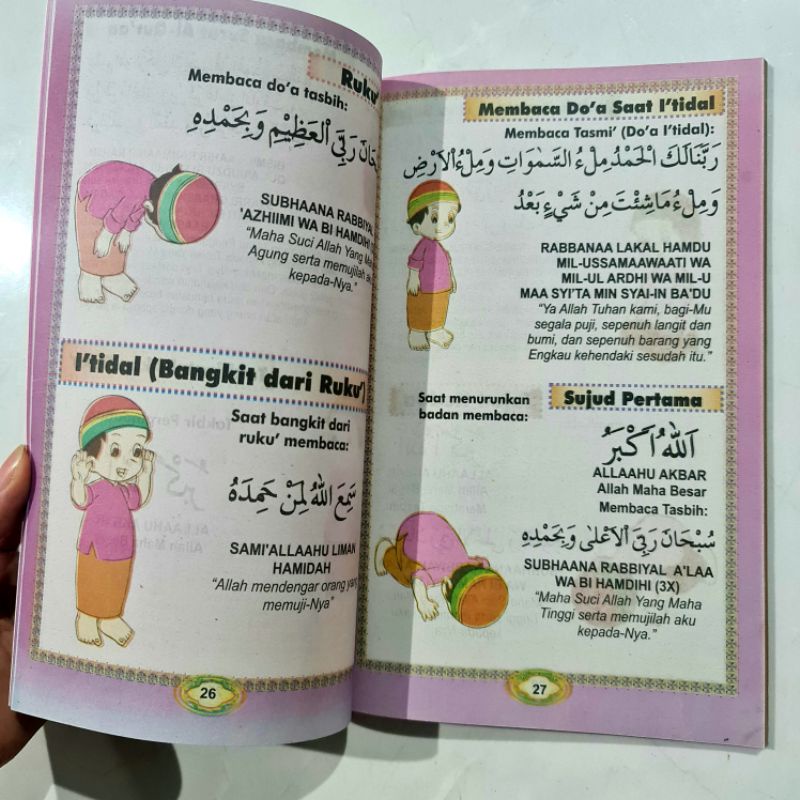 Ruku'
Membaca do'a tasbih:
رَبِّيَ الْعَظِيْمِ وَبِحَمْدِهِ
SUBHAANA RABBIYAL
'AZHIIMI WA BI HAMDIHI
"Maha Suci Allah Yang Maha
Agung serta memujilah aku
kepada-Nya."
I'tidal (Bangkit dari Ruku')
Saat bangkit dari
ruku' membaca:
سَمِعَ اللهُ لِمَنْ حَمِدَهُ
SAMI'ALLAAHU LIMAN
HAMIDAH
"Allah mendengar orang yang
memuji-Nya"
26
Membaca Do'a Saat I'tidal
Membaca Tasmi' (Do'a I'tidal):
رَبَّنَالَكَ الْحَمْدُ مِلْءُ السَّمٰوَاتِ وَمِلْءُ الْاَرْضِ
وَمِلْءُ مَاشِئْتَ مِنْ شَيْءٍ بَعْدُ
RABBANAA LAKAL HAMDU
MIL-USSAMAAWAATI WA
MIL-UL ARDHI WA MIL-U
MAA SYI'TA MIN SYAI-IN BA'DU
"Ya Allah Tuhan kami, bagi-Mu
segala puji, sepenuh langit dan
bumi, dan sepenuh barang yang
Engkau kehendaki sesudah itu."
Sujud Pertama
Saat menurunkan
badan membaca:
اَللهُ اَكْبَرُ
ALLAAHU AKBAR
Allah Maha Besar
Membaca Tasbih:
سُبْحَانَ رَبِّيَ الْاَعْلٰى وَبِحَمْدِهِ
SUBHAANA RABBIYAL A'LAA
WA BI HAMDIHI (3X)
"Maha Suci Allah Yang Maha
Tinggi serta memujilah aku
kepada-Nya."
27